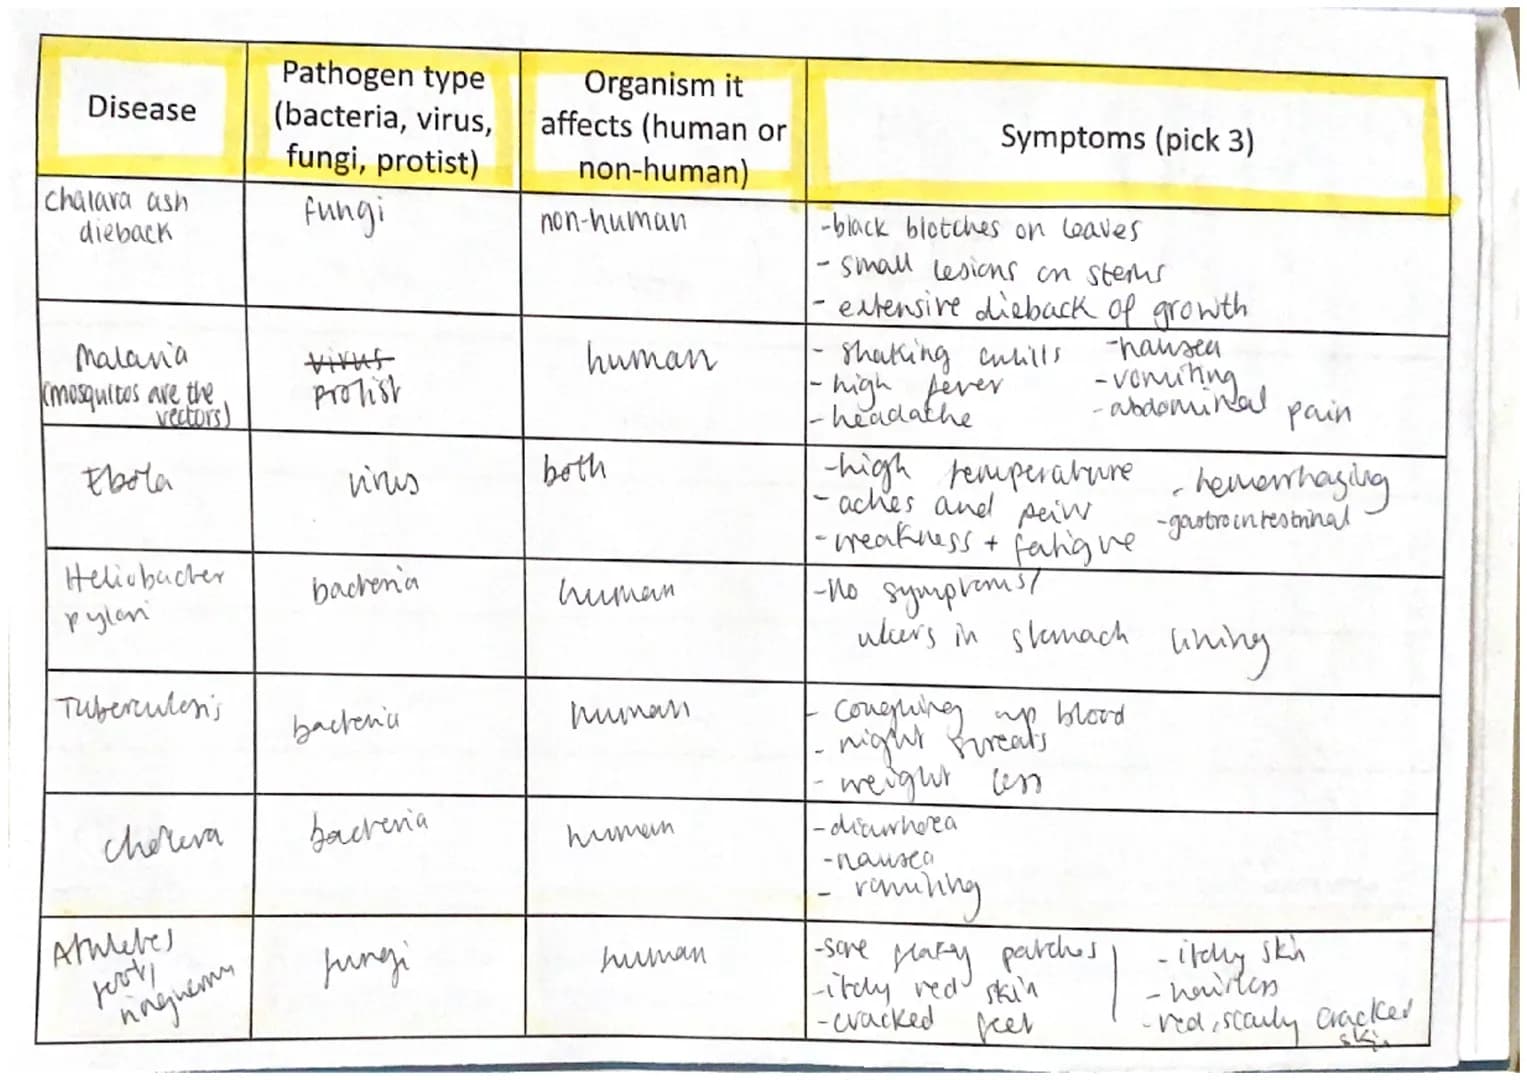 Disease
Pathogen type
(bacteria, virus,
fungi, protist)
Organism it
affects (human or
non-human)
Symptoms (pick 3)
chalara ash
dieback
fungi
non-human
-black blotches on leaves
- small lesions on stems
- extensive dieback of growth
Malaria
(mosquitos are the
vectors)
virus
protist
human
- shaking chills
- high fever
- headache
-nausea
-vomiting
-abdominal pain
Ebola
virus
both
-high temperature
- aches and pain
-weakness + fatigue
- hemorrhaging
-gastrointestinal
Heliobacter
pylori
bacteria
human
-No symptoms/
ulcers in stomach lining
Tuberculosis
bacteria
human
- Coughing up blood
- night sweats
- weight loss
cholera
bacteria
human
-diarrhoea
-nausea
- vomiting
Athletes
foot/
ringworm
fungi
human
-sore flakey patches
-itchy red skin
-cracked feet
- itchy skin
- hairless
-red, scaly cracked
skin